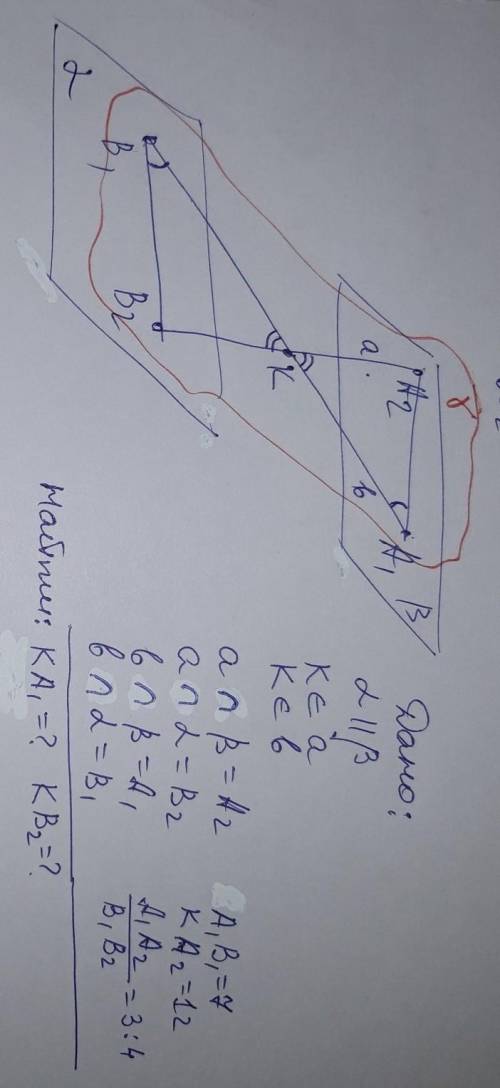 α
B₁
B₂
K
a
A₂
γ
b
A₁
β
Дано:
α || β
K ∈ a
K ∈ b
a ∩ β = A₂
a ∩ α = B₂
b ∩ β = A₁
b ∩ α = B₁
A₁B₁ = 7
KA₂ = 12
A₁A₂
B₁B₂ = 3:4
Найти: KA₁ = ? KB₂ = ?